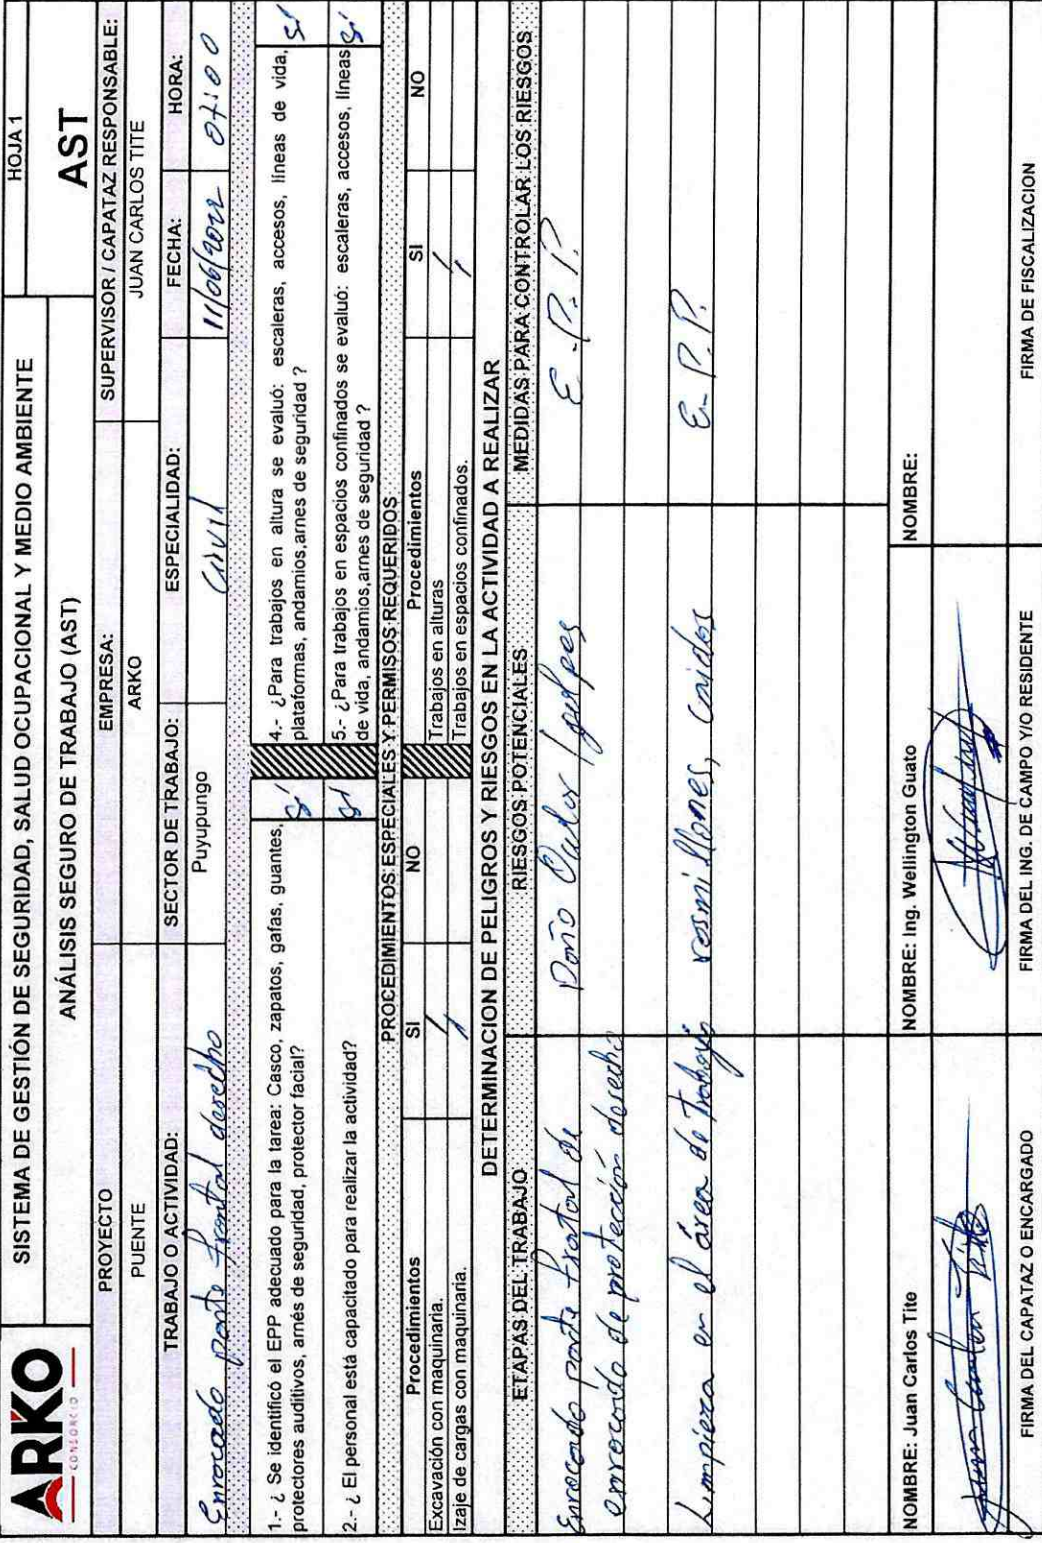 ARKO
CONSORCIO
SISTEMA DE GESTIÓN DE SEGURIDAD, SALUD OCUPACIONAL Y MEDIO AMBIENTE
HOJA 1
ANÁLISIS SEGURO DE TRABAJO (AST)
AST
PROYECTO
EMPRESA:
SUPERVISOR / CAPATAZ RESPONSABLE:
PUENTE
ARKO
JUAN CARLOS TITE
TRABAJO O ACTIVIDAD:
SECTOR DE TRABAJO:
ESPECIALIDAD:
FECHA:
HORA:
Enrocado parte frontal derecho
Puyupungo
Civil
11/06/2022
07:00
1.- ¿ Se identificó el EPP adecuado para la tarea: Casco, zapatos, gafas, guantes,
protectores auditivos, arnés de seguridad, protector facial?
Sí
4.- ¿Para trabajos en altura se evaluó: escaleras, accesos, líneas de vida,
plataformas, andamios,arnes de seguridad ?
Sí
2.- ¿ El personal está capacitado para realizar la actividad?
Sí
5.- ¿Para trabajos en espacios confinados se evaluó: escaleras, accesos, líneas
de vida, andamios,arnes de seguridad ?
Sí
PROCEDIMIENTOS ESPECIALES Y PERMISOS REQUERIDOS
Procedimientos
SI
NO
Procedimientos
SI
NO
Excavación con maquinaria.
/
Trabajos en alturas
/
Izaje de cargas con maquinaria.
/
Trabajos en espacios confinados.
/
DETERMINACION DE PELIGROS Y RIESGOS EN LA ACTIVIDAD A REALIZAR
ETAPAS DEL TRABAJO
RIESGOS POTENCIALES
MEDIDAS PARA CONTROLAR LOS RIESGOS
Enrocado parte frontal de
enrocado de protección derecho
golpes
E.P.P.
Limpieza en el área de trabajo
resmillones, caidas
E.P.P.
NOMBRE: Juan Carlos Tite
NOMBRE: Ing. Wellington Guato
NOMBRE:
Juan Carlos Tite
FIRMA DEL CAPATAZ O ENCARGADO
FIRMA DEL ING. DE CAMPO Y/O RESIDENTE
FIRMA DE FISCALIZACION